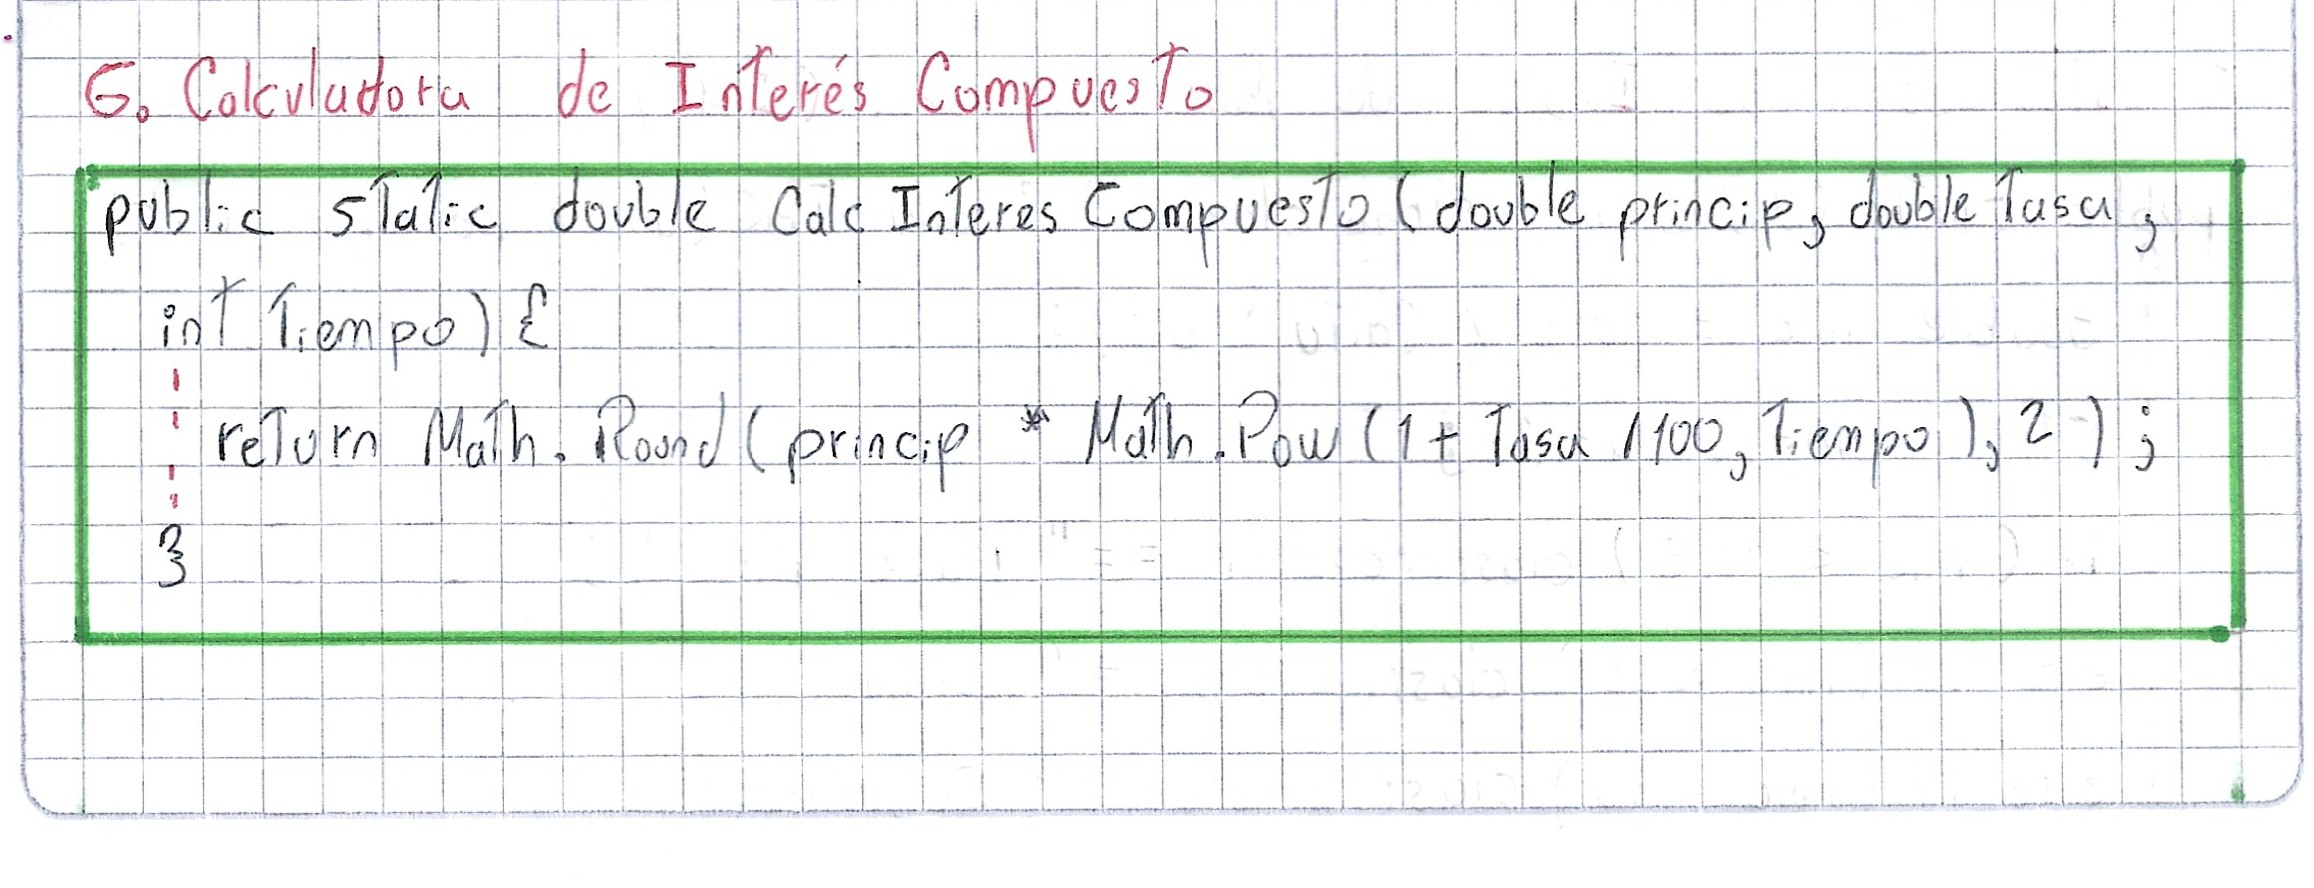 6. Calculadora de Interés Compuesto
public static double CalcInteresCompuesto(double princip, double Tasa,
int Tiempo) {
return Math.Round(princip * Math.Pow(1 + Tasa / 100, Tiempo), 2);
}